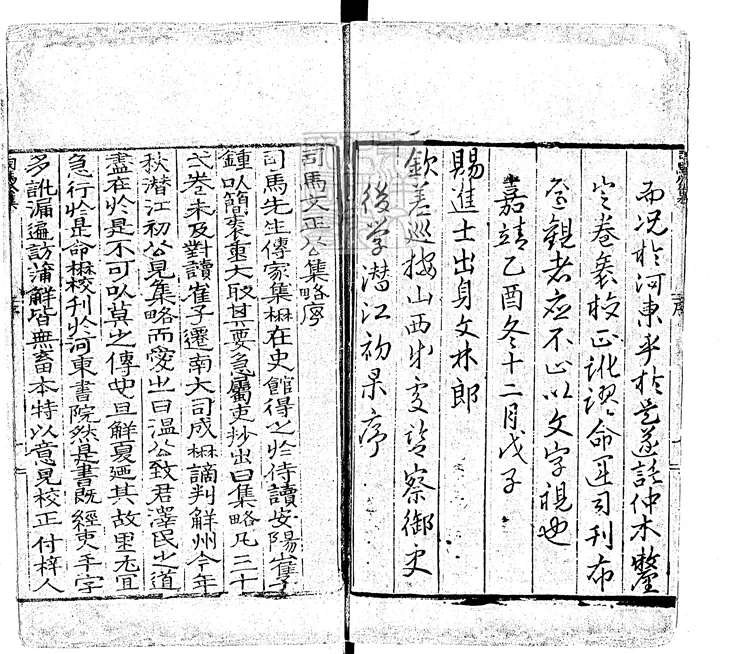 而况於河東乎於是遂託仲木釐
定卷袠校正訛謬命運司刊布
觀者應不止以文字視也
嘉靖乙酉冬十二月戊子
賜進士出身文林郎
欽差巡按山西等處監察御史
後學潛江初杲序
司馬文正公集略序
司馬先生傳家集柟在史館得之於侍讀安陽崔子
鍾以簡袠重大取其要急屬吏抄出曰集略凡三十
弌卷未及對讀崔子遷南大司成柟謫判解州今年
秋潛江初公見集略而愛之曰溫公致君澤民之道
盡在於是不可以莫之傳也且解夏廼其故里尤宜
急行於是命柟校刊於河東書院然是書既經吏手字
多訛漏遍訪蒲解皆無畜本特以意見校正付梓人